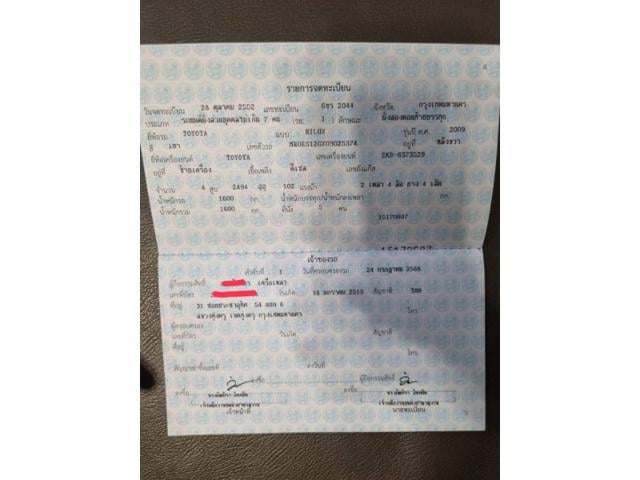 รายการจดทะเบียน
วันจดทะเบียน 28 ตุลาคม 2552 เลขทะเบียน 2044 จังหวัด กรุงเทพมหานคร
ประเภท รถยนต์นั่งส่วนบุคคลไม่เกิน 7 คน (รย. 1) ลักษณะ นั่งสองตอนท้ายบรรทุก
ยี่ห้อรถ TOYOTA แบบ HILUX รุ่นปี ค.ศ. 2009
สี เทา เลขตัวรถ อยู่ที่
ยี่ห้อเครื่องยนต์ TOYOTA เลขเครื่องยนต์ 2KD-6373529
อยู่ที่ ซ้ายเครื่อง เชื้อเพลิง ดีเซล เลขถังแก๊ส
จำนวน 4 สูบ 2494 ซีซี 102 แรงม้า 2 เพลา 4 ล้อ ยาง 4 เส้น
น้ำหนักรถ 1600 กก. น้ำหนักบรรทุก/น้ำหนักลงเพลา กก.
น้ำหนักรวม 1600 กก. ที่นั่ง 5 คน
เจ้าของรถ
ลำดับที่ 1 วันที่ครอบครองรถ 24 กรกฎาคม 2568
ผู้ถือกรรมสิทธิ์
เลขที่บัตร วันเกิด 16 มกราคม สัญชาติ ไทย
ที่อยู่ 31 ซอยประชาอุทิศ 54 แยก 6 โทร.
แขวงทุ่งครุ เขตทุ่งครุ กรุงเทพมหานคร
ผู้ครอบครอง
เลขที่บัตร วันเกิด สัญชาติ
ที่อยู่ โทร.
สัญญาเช่าซื้อเลขที่ ลงวันที่
ลงชื่อ ผู้ถือกรรมสิทธิ์
ลงชื่อ ลงชื่อ
เจ้าหน้าที่ นายทะเบียน